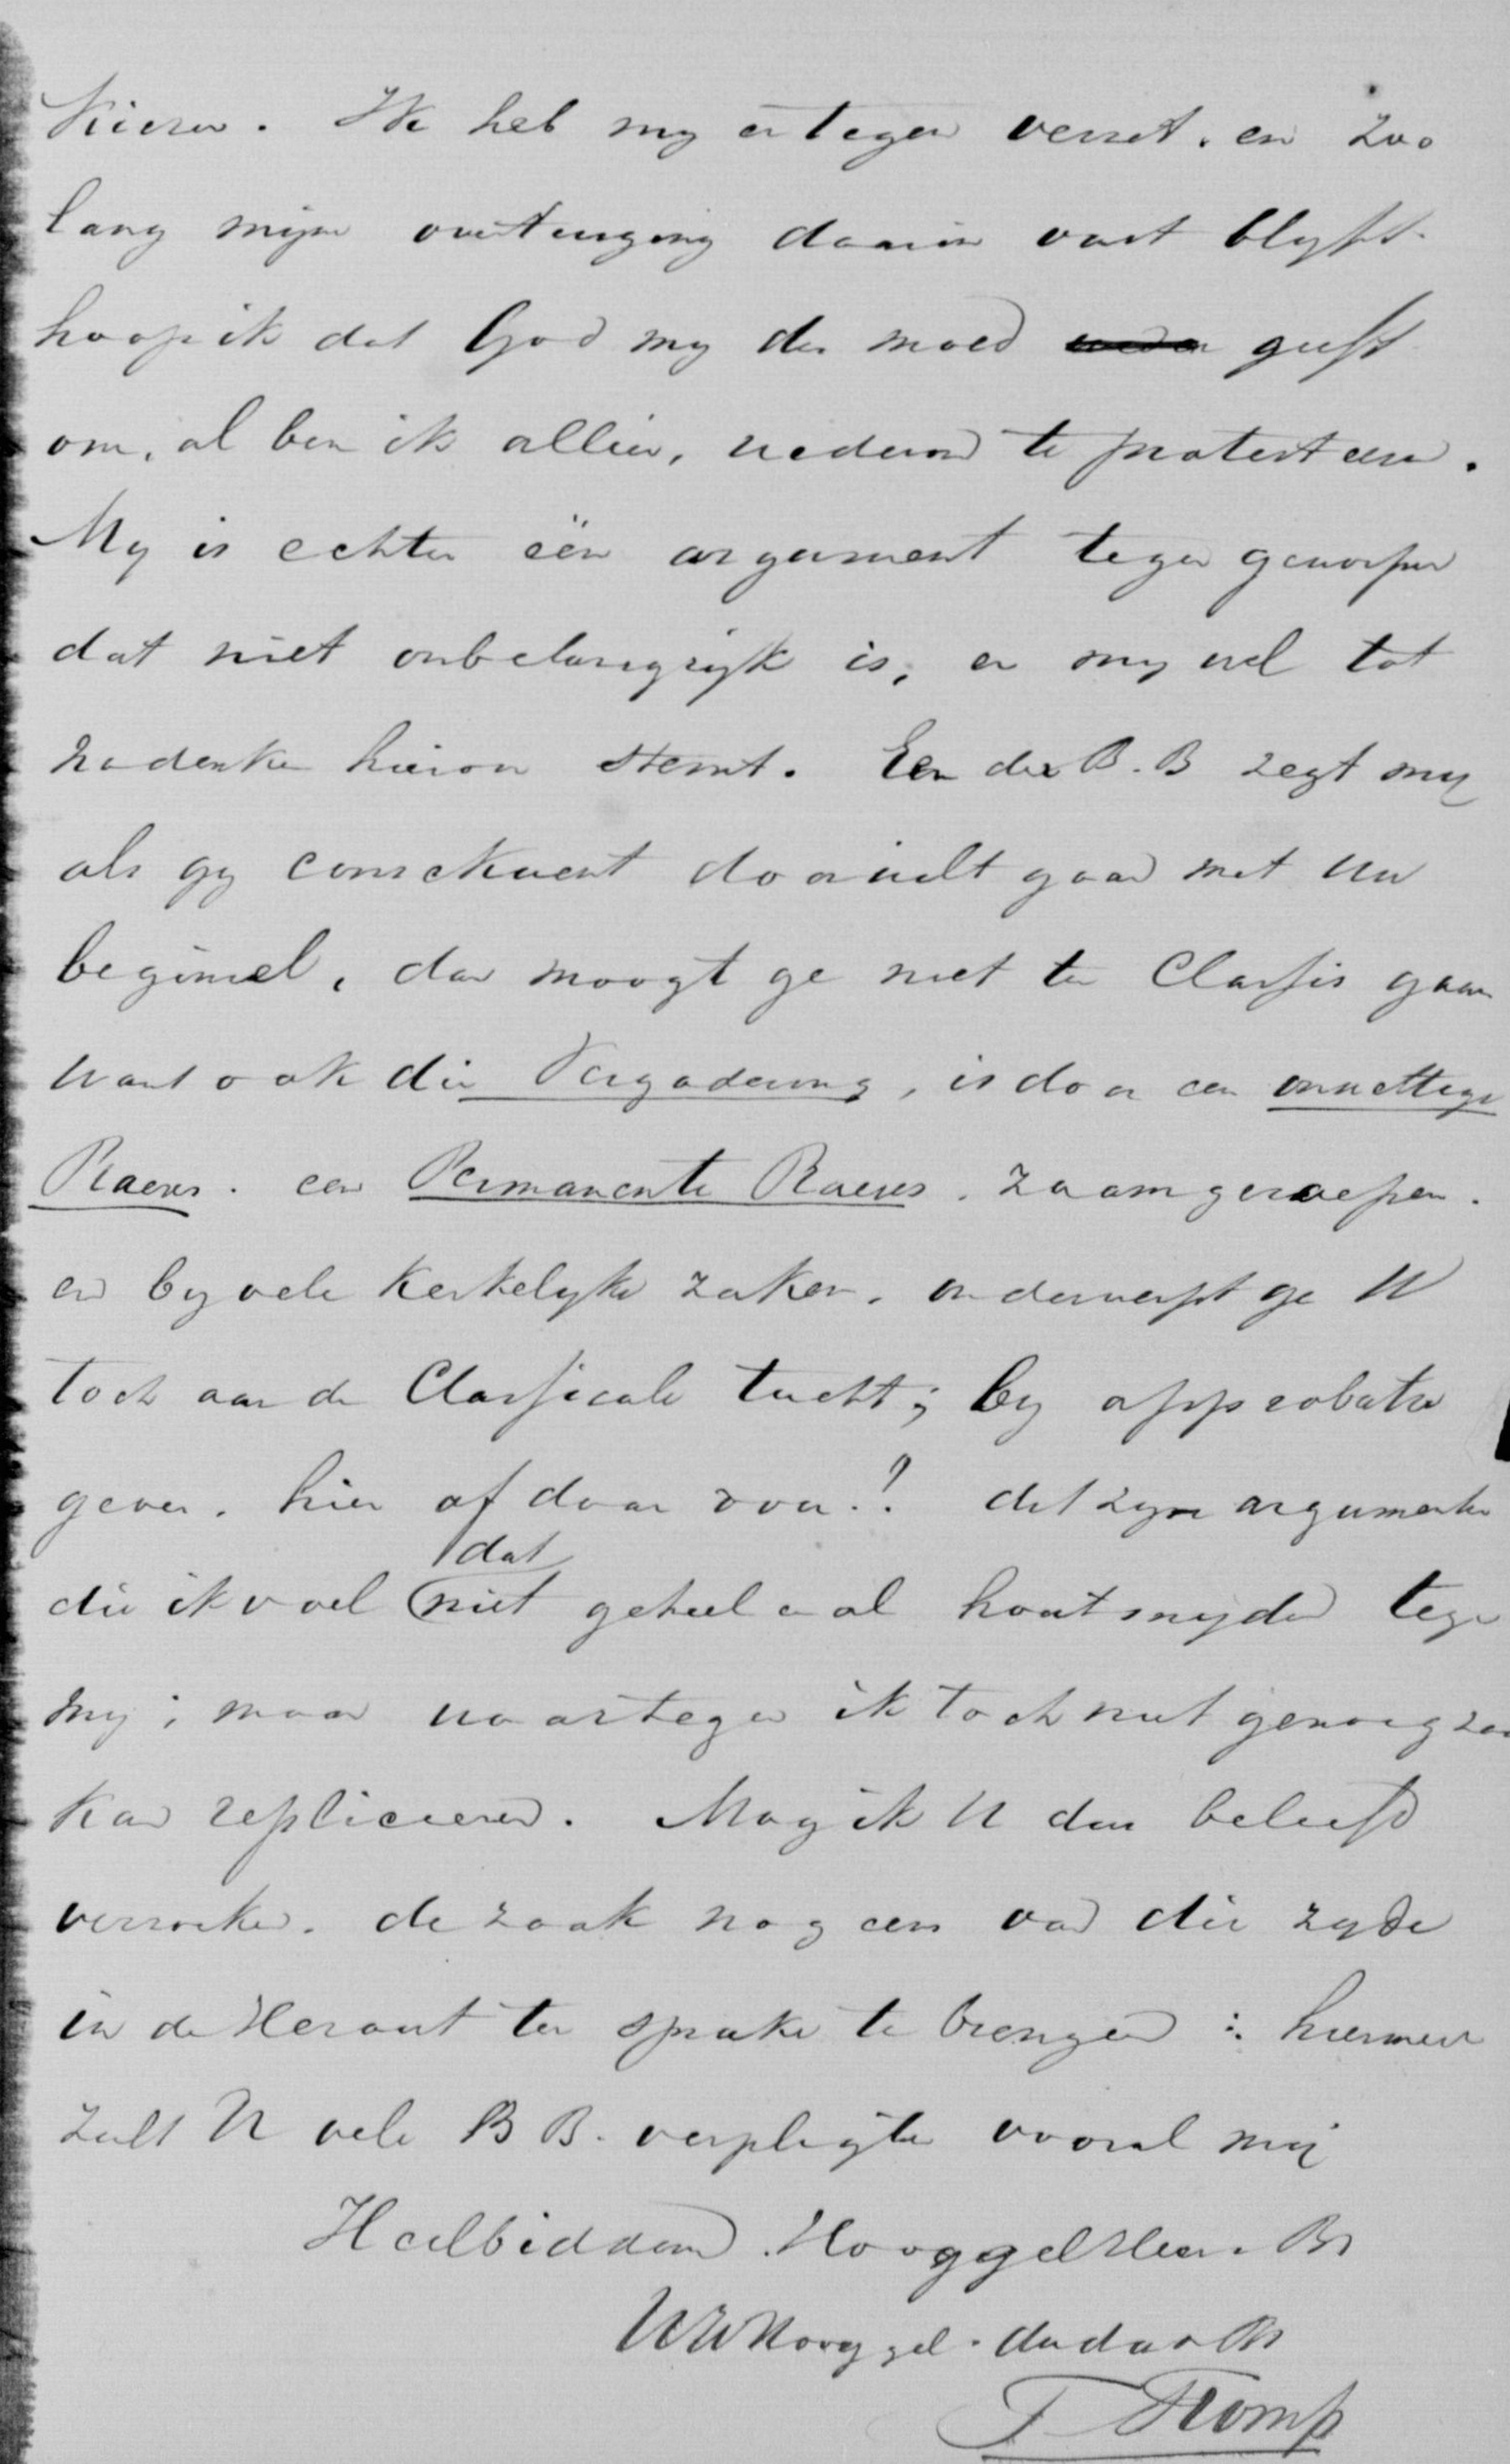 kiezen. Ik heb my er tegen verzet. en zoo
lang mijne overtuiging daarin vast blyft
hoop ik dat God my den moed geeft
om, al ben ik alleen, wederom te protesteren.
My is echter één argument tegen geworpen
dat niet onbelangryk is, en my wel tot
nadenken hierover stemt. Een der B.B zegt my
als gy consekwent door wilt gaan met Uw
beginsel, dan moogt ge niet ter Classis gaan
want ook die Vergadering, is door een onwettige
Praeses. een Permanente Praeses. zaamgeroepen.
en by vele Kerkelyke zaken. onderwerpt ge U
toch aan de Classicale tucht; by approbatie
geven. hier of daar voor.! dit zyn argumenten
dat
die ik voel niet geheel en al hout snyden tegen
my; maar waartegen ik toch niet genoegzaam
kan repliceeren. Mag ik U dan beleefd
verzoeken. de zaak nog eens van die zyde
in de Heraut ter sprake te brengen :. hiermede
zult U vele B B. verpligten vooral mij
Heilbiddend. Hooggel Heer. Br
UW Hooggel. dw dnr & Br
T Tromp